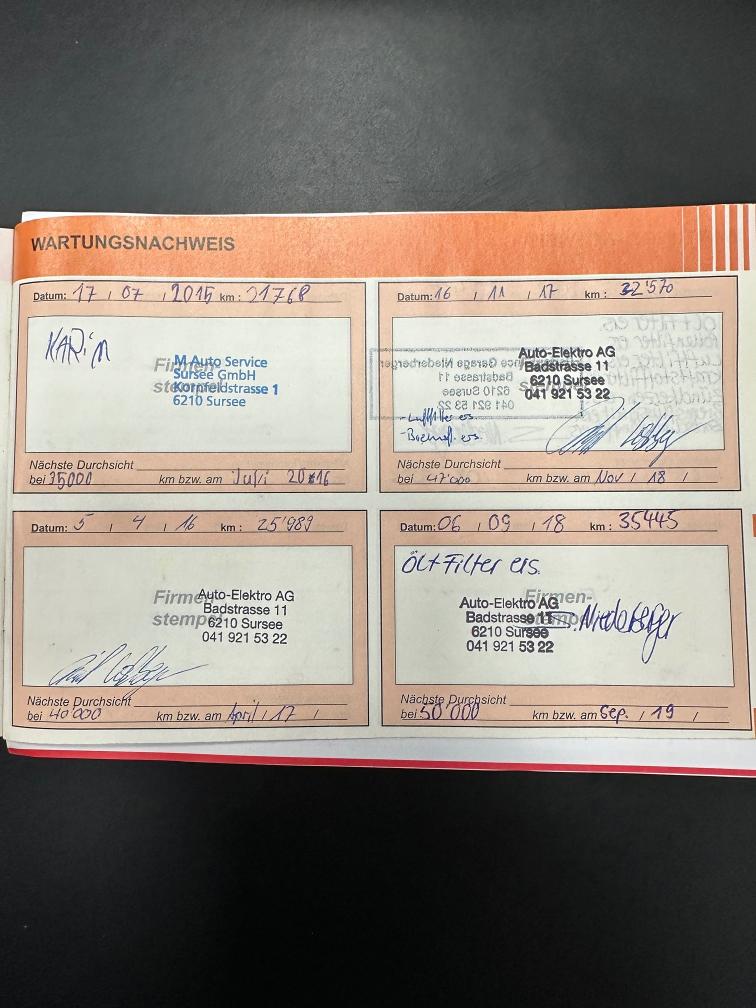 WARTUNGSNACHWEIS
Datum: 17 / 07 / 2015 km: 21768
KARi'n
Firmen-
stempel
M Auto Service
Sursee GmbH
Kornfeldstrasse 1
6210 Sursee
Nächste Durchsicht
bei 35000 km bzw. am Juli 2016
Datum: 5 / 4 / 16 km: 25'989
Firmen-
stempel
Auto-Elektro AG
Badstrasse 11
6210 Sursee
041 921 53 22
Nächste Durchsicht
bei 40'000 km bzw. am April / 17 /
Datum: 16 / 11 / 17 km: 32'570
Auto-Elektro AG
Badstrasse 11
6210 Sursee
041 921 53 22
- Luftfilter ers.
- Bremsfl. ers.
Nächste Durchsicht
bei 47'000 km bzw. am Nov / 18 /
Datum: 06 / 09 / 18 km: 35445
Öl+Filter ers.
Firmen-
stempel
Auto-Elektro AG
Badstrasse 11
6210 Sursee
041 921 53 22
S. Niederberger
Nächste Durchsicht
bei 50'000 km bzw. am Sep. / 19 /